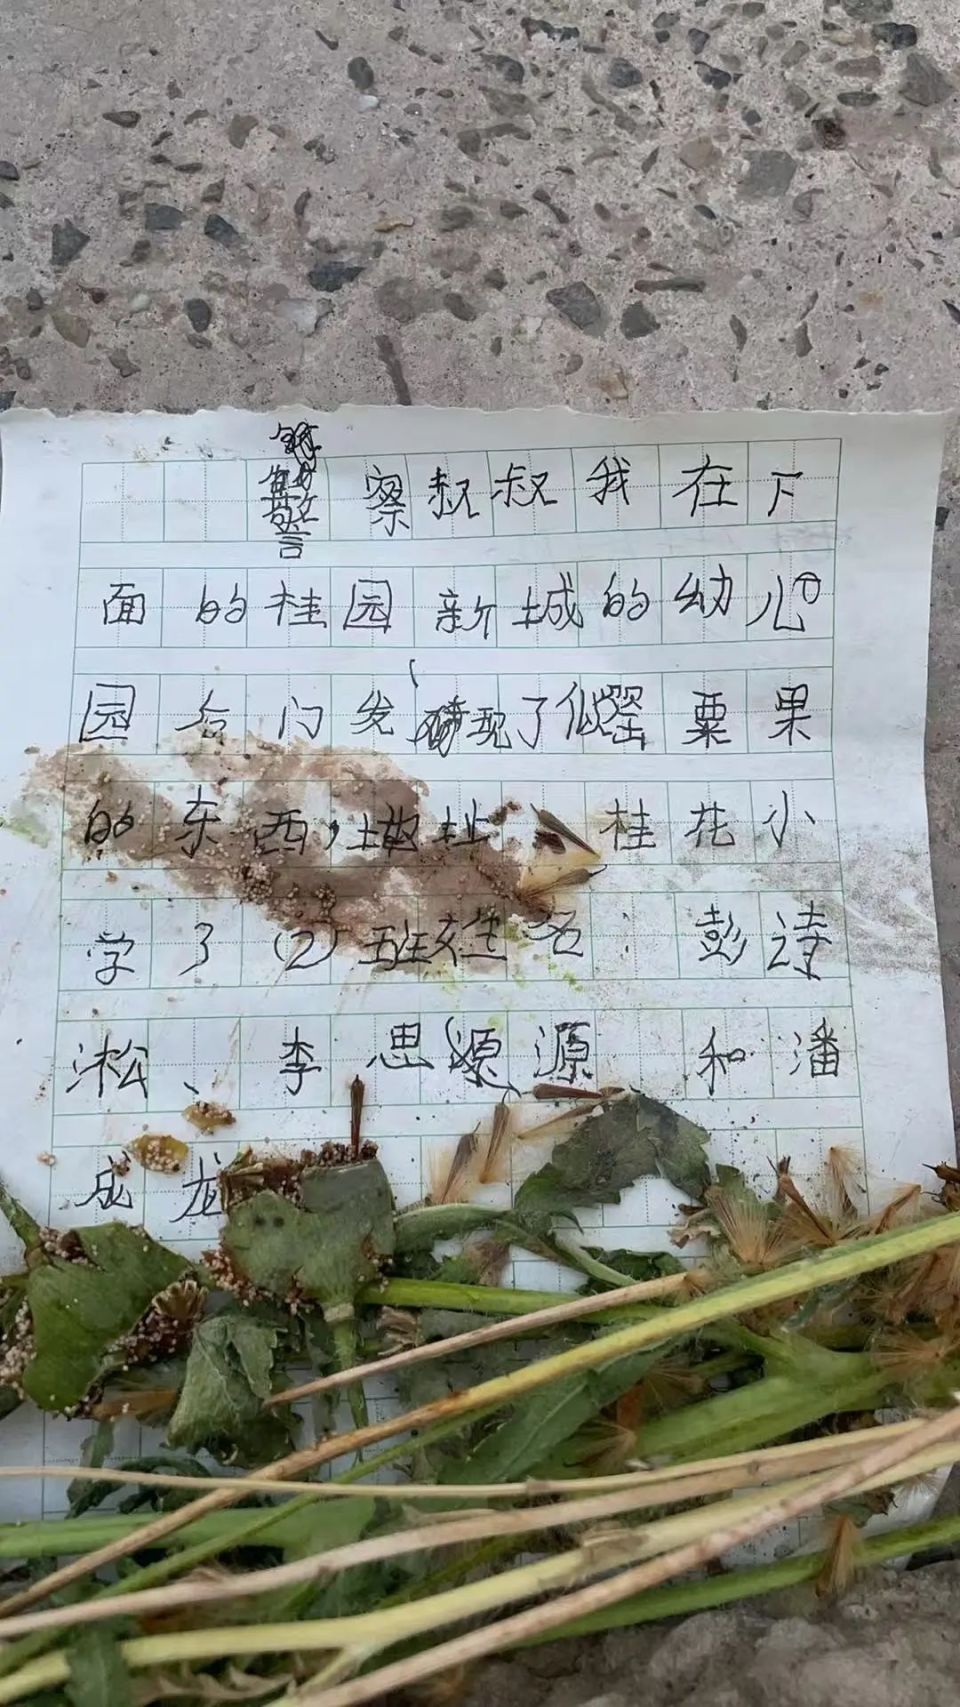 警察叔叔我在下
面的桂园新城的幼儿
园后门发现了似罂粟果
的东西，地址 桂花小
学3（2）班姓名 彭诗
淞、李思源 和潘
成龙